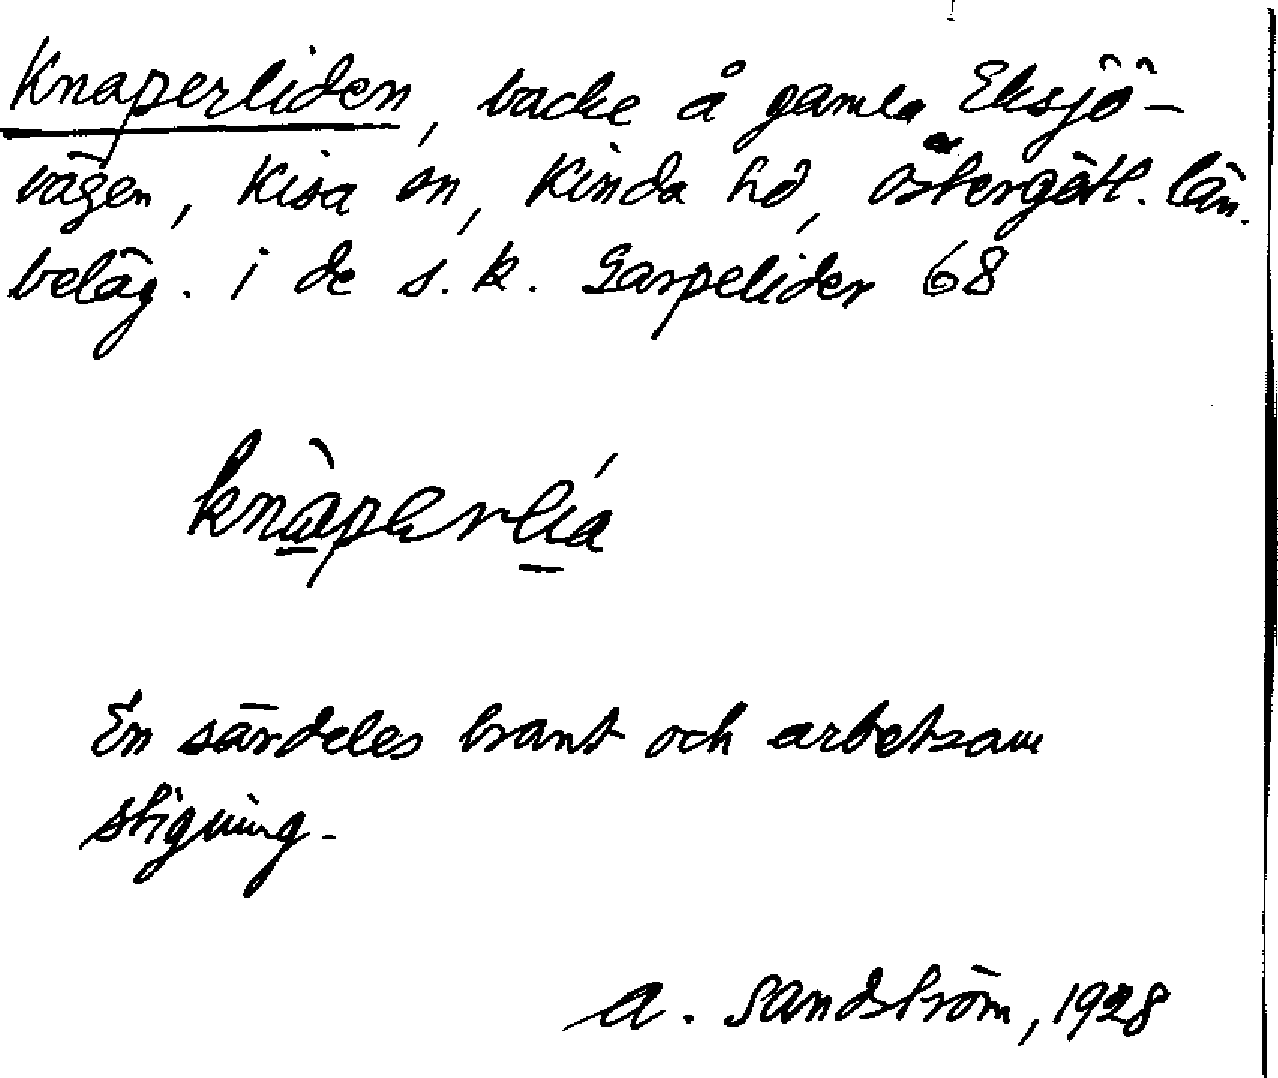 Knaperliden, backe å gamla Eksjö-
vägen, Kisa sn, Kinda hd, Östergötl. län.
beläg. i de s.k. Garpelider 68
knàperlía
En särdeles brant och arbetsam
stigning.
A. Sandström, 1928